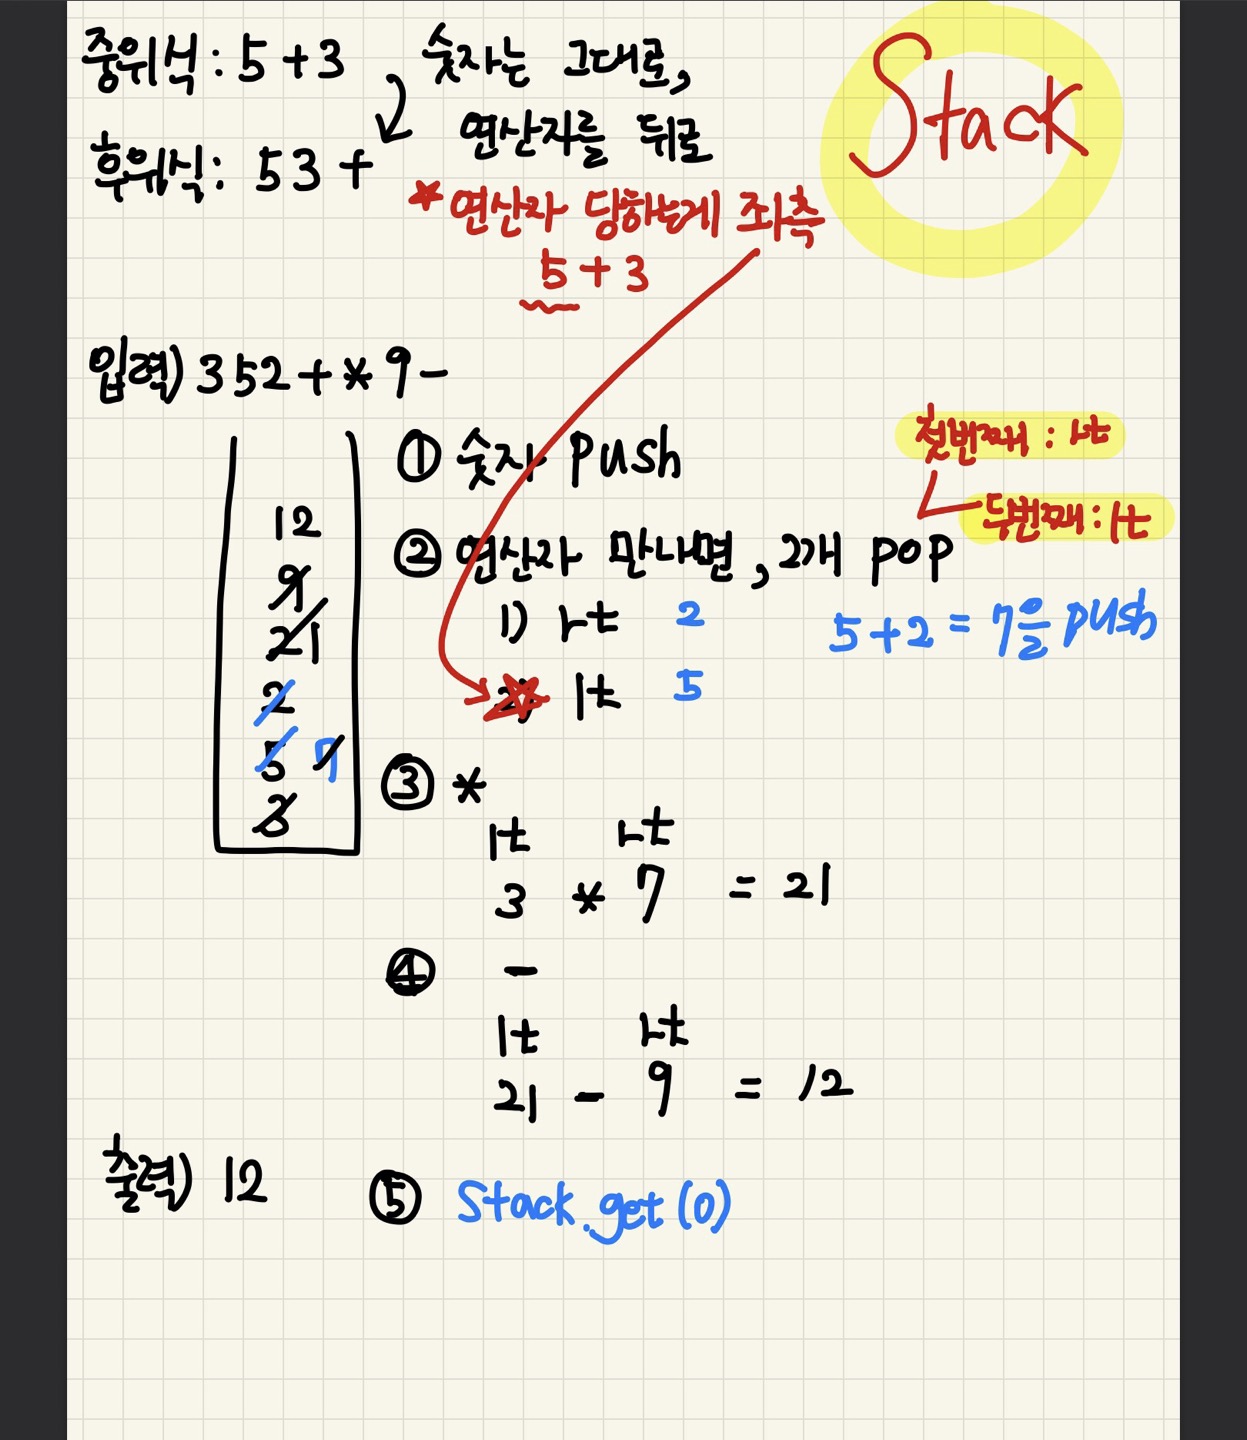 중위식 : 5 + 3
숫자는 그대로,
연산자를 뒤로
Stack
후위식 : 5 3 +
* 연산자 당하는게 좌측
5 + 3
입력) 3 5 2 + * 9 -
① 숫자 push
첫번째 : rt
두번째 : lt
② 연산자 만나면, 2개 pop
1) rt 2
5 + 2 = 7을 push
2) lt 5
12
9
21
2
5 7
3
③ *
lt rt
3 * 7 = 21
④ -
lt rt
21 - 9 = 12
출력) 12
⑤ Stack.get(0)